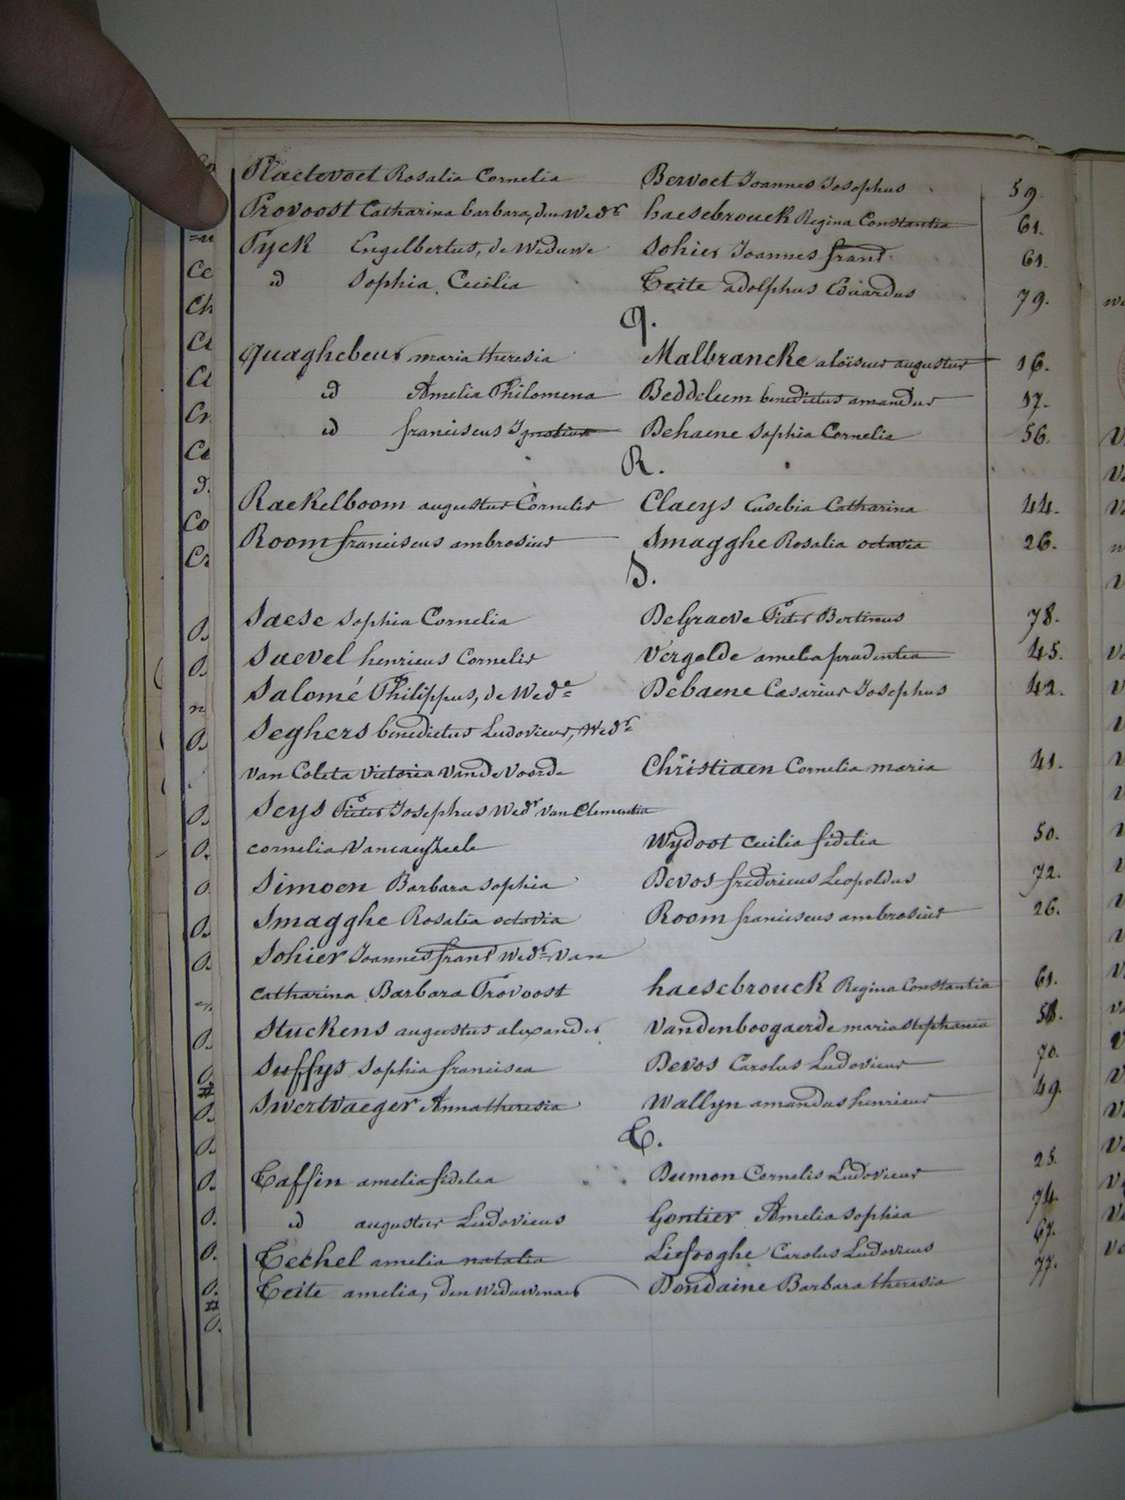 Plaetevoet Rosalia Cornelia Bervoet Joannes Josephus 59.
Provoost Catharina barbara, den Wedr haesebrouck Regina Constantia 61.
Pyck Engelbertus, de Weduwe Sohier Joannes frans 61.
id Sophia Cecilia Teite adolphus Eduardus 79.
Q.
Quaghebeur maria theresia Malbrancke aloïsius augustus 16.
id Amelia Philomena Beddeleem benedictus amandus 17.
id franciscus Ignatius Dehaene Sophia Cornelia 56.
R.
Raekelboom augustus Cornelis Claeys Eusebia Catharina 44.
Room franciscus ambrosius Smagghe Rosalia octavia 26.
S.
Saese Sophia Cornelia DeGraeve Pieter Bertinus 78.
Saevel henricus Cornelis Vergolde amelia prudentia 45.
Salomé Philippus, de Wede Debaene Caesarius Josephus 42.
Seghers benedictus Ludovicus, Wedr
van Coleta victoria VandeVoorde Christiaen Cornelia maria 41.
Seys Pieter Josephus Wedr van Clementia
cornelia Wydoot Cecilia fidelia 50.
Simoen Barbara Sophia Devos fredericus Leopoldus 72.
Smagghe Rosalia octavia Room franciscus ambrosius 26.
Sohier Joannes frans Wedr van
catharina Barbara Provoost haesebrouck Regina Constantia 61.
Stuckens augustus alexander Vandenboogaerde maria stephania 58.
Suffys Sophia francisca Devos Carolus Ludovicus 70.
Swertvaeger Anna theresia Wallyn amandus henricus 49.
T.
Taffin amelia fidelia Dumon Cornelis Ludovicus 25.
id augustus Ludovicus Gontier Amelia Sophia 74.
Techel amelia natalia Liefooghe Carolus Ludovicus 67.
Teite amelia, den Weduwenaer Dondaine Barbara theresia 77.